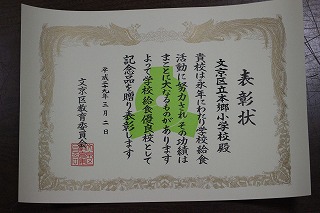 表彰状
文京区立本郷小学校殿
貴校は永年にわたり学校給食
活動に努力されその功績は
まことに大なるものがあります
よって学校給食優良校として
記念品を贈り表彰します
平成二十九年三月二日
文京区教育委員会